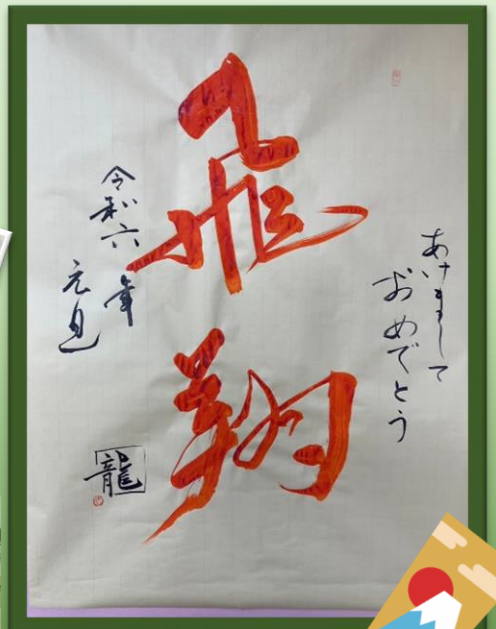 あけまして
おめでとう
飛翔
令和六年
元旦
龍